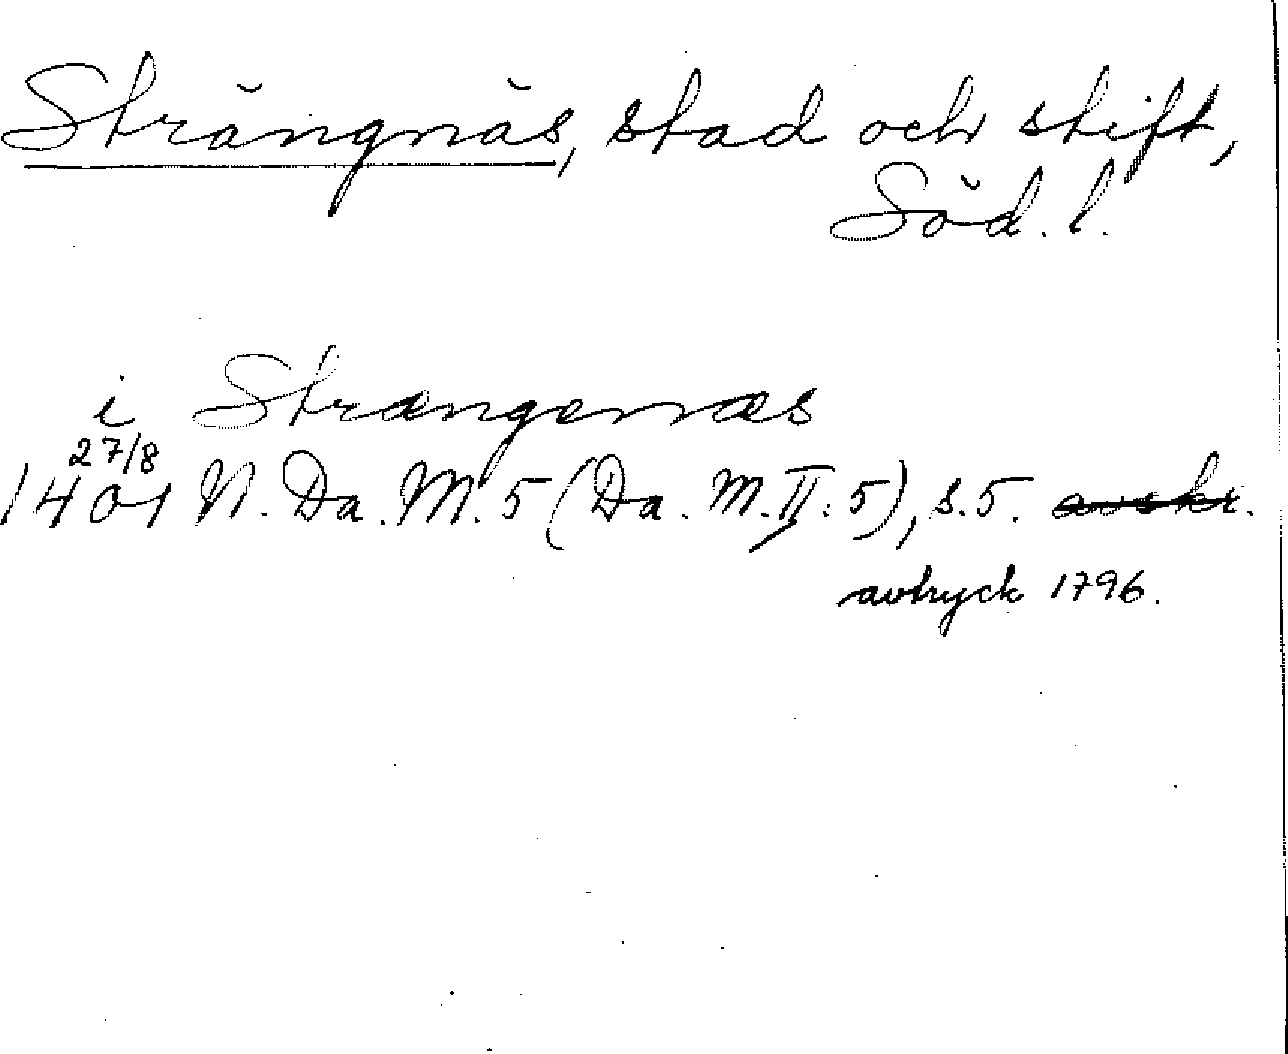 Strängnäs, stad och stift,
Söd. l.
i Strængenæs
27/8
1401 N. Da. M. 5 (Da. M. II: 5), s. 5. avskr.
avtryck 1796.